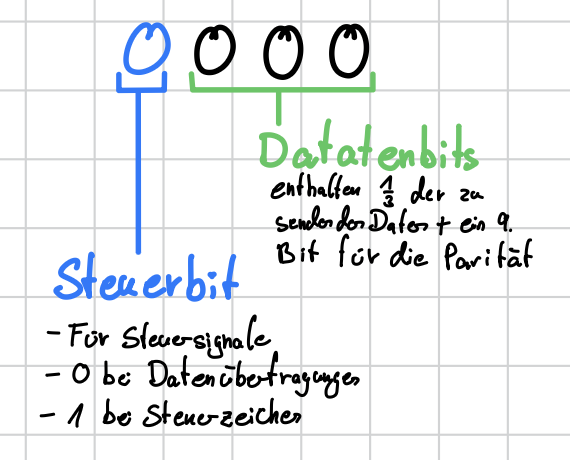 0 0 0 0
Datatenbits
enthalten 1/3 der zu
sendenden Daten + ein 9.
Bit für die Parität
Steuerbit
- Für Steuersignale
- 0 bei Datenübertragungen
- 1 bei Steuerzeichen